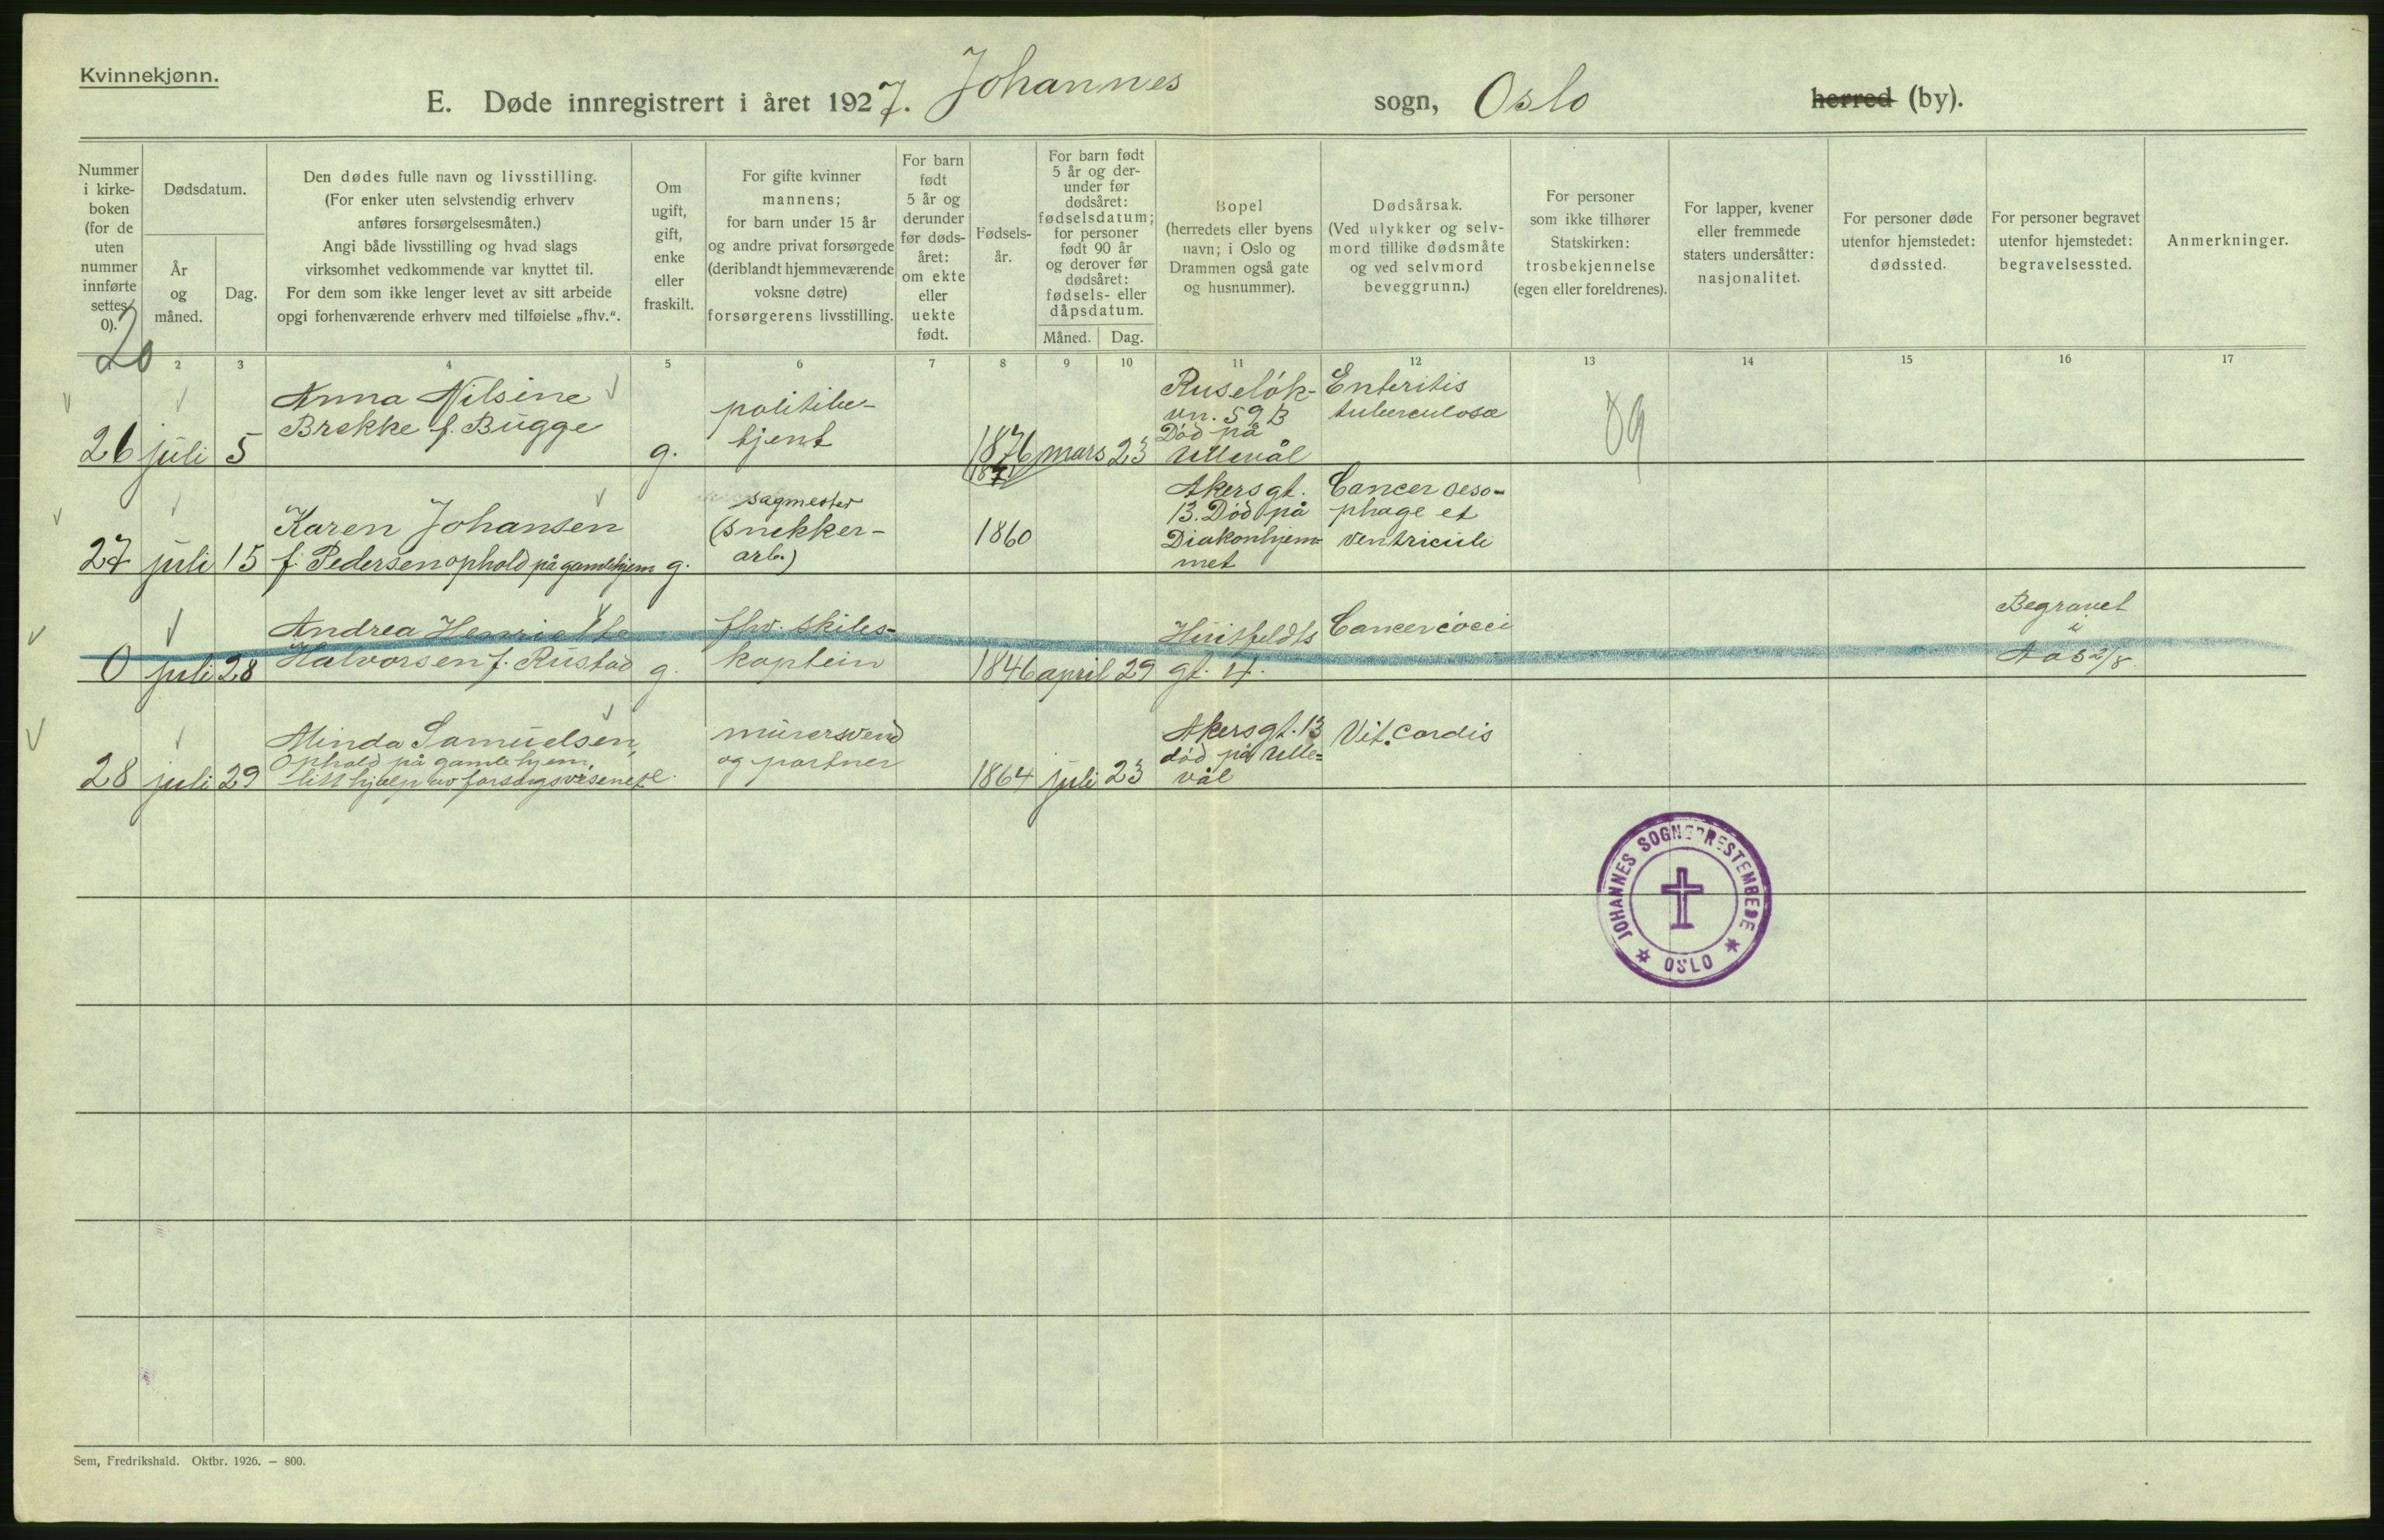 Kvinnekjønn.
E. Døde innregistrert i året 1927. Johannes sogn, Oslo herred (by).
Nummer
i kirke-
boken
(for de
uten
nummer
innførte
settes
0).
Dødsdatum.
År
og
måned.
Dag.
Den dødes fulle navn og livsstilling.
(For enker uten selvstendig erhverv
anføres forsørgelsesmåten.)
Angi både livsstilling og hvad slags
virksomhet vedkommende var knyttet til.
For dem som ikke lenger levet av sitt arbeide
opgi forhenværende erhverv med tilføielse „fhv.“.
Om
ugift,
gift,
enke
eller
fraskilt.
For gifte kvinner
mannens;
for barn under 15 år
og andre privat forsørgede
(deriblandt hjemmeværende
voksne døtre)
forsørgerens livsstilling.
For barn
født
5 år og
derunder
før døds-
året:
om ekte
eller
uekte
født.
Fødsels-
år.
For barn født
5 år og der-
under før
dødsåret:
fødselsdatum;
for personer
født 90 år
og derover før
dødsåret:
fødsels- eller
dåpsdatum.
Måned. Dag.
Bopel
(herredets eller byens
navn; i Oslo og
Drammen også gate
og husnummer).
Dødsårsak.
(Ved ulykker og selv-
mord tillike dødsmåte
og ved selvmord
beveggrunn.)
For personer
som ikke tilhører
Statskirken:
trosbekjennelse
(egen eller foreldrenes).
For lapper, kvener
eller fremmede
staters undersåtter:
nasjonalitet.
For personer døde
utenfor hjemstedet:
dødssted.
For personer begravet
utenfor hjemstedet:
begravelsessted.
Anmerkninger.
20
1 2 3 4 5 6 7 8 9 10 11 12 13 14 15 16 17
26 juli 5
Anna Nilsine
Brekke f. Bugge
g.
politibe-
tjent
1876 mars 23
1871
Ruseløk-
vn. 59 B
Død på
Ullevål
Enteritis
tuberculosa
89
27 juli 15
Karen Johansen
f. Pedersen ophold på gamlehjem
g.
sagmester
(snekker-
arb.)
1860
Akersgt.
13. Død på
Diakonhjem-
met
Cancer oeso-
phage et
ventriculi
0 juli 28
Andrea Henriette
Halvorsen f. Rustad
g.
fhv. skibs-
kaptein
1846 april 29
Huitfeldts
gt. 4.
Cancer coeci
Begravet
i
Aas 2/8.
28 juli 29
Minda Samuelsen,
Ophold på gamlehjem,
litt hjælp av forsorgsvesenet
e.
murersvend
og portner
1864 juli 23
Akersgt. 13
død på Ulle-
vål
Vit. Cordis
JOHANNES SOGNEPRESTEMBEDE
OSLO
Sem, Fredrikshald. Oktbr. 1926. — 800.